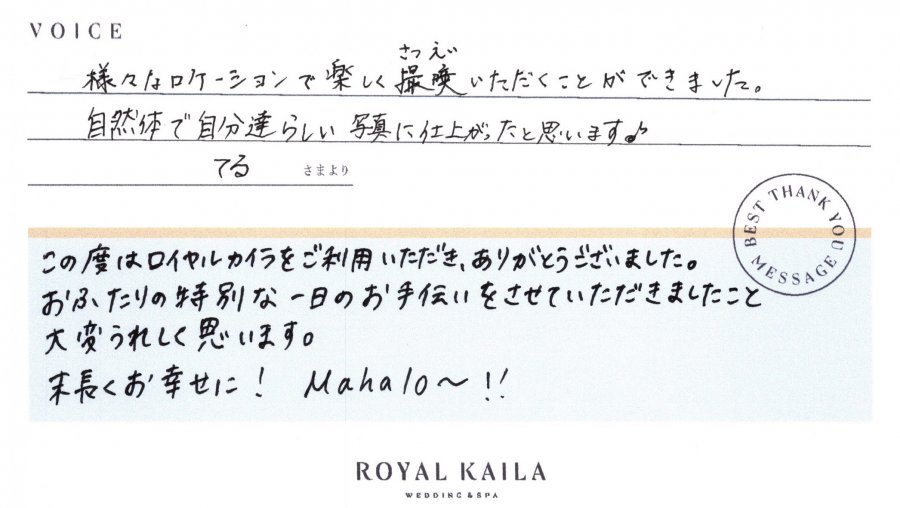 VOICE
さつえい
様々なロケーションで楽しく撮影いただくことができました。
自然体で自分達らしい写真に仕上がったと思います♪
てる さまより
BEST THANK YOU MESSAGE
この度はロイヤルカイラをご利用いただき、ありがとうございました。
おふたりの特別な一日のお手伝いをさせていただきましたこと
大変うれしく思います。
末長くお幸せに! Mahalo〜!!
ROYAL KAILA
WEDDING & SPA